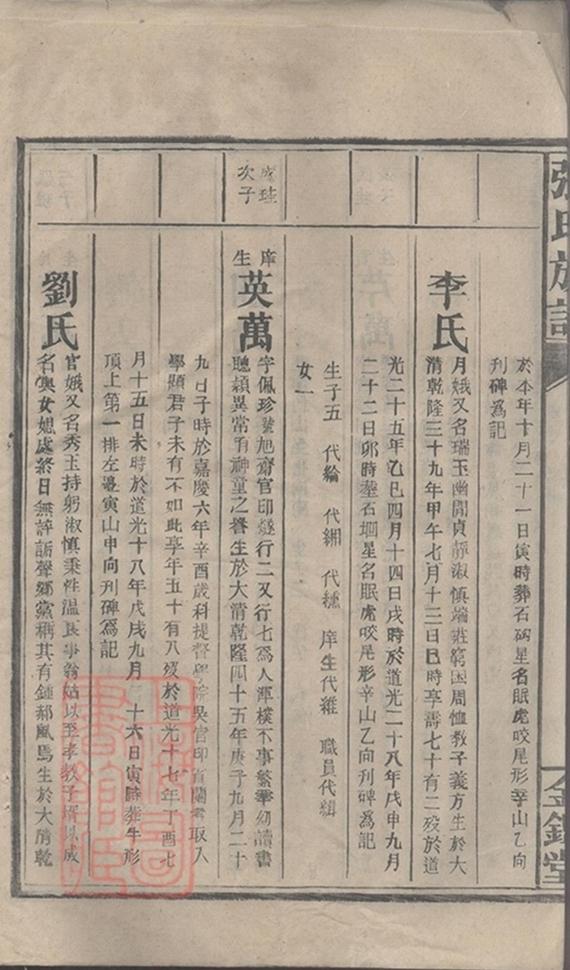 張氏族譜
金鑑堂
於本年十月二十一日寅時葬石碣星名眠虎咬尾形辛山乙向
刋碑爲記
李氏
月娥又名瑞玉幽閒貞靜淑慎端莊窮困周恤教子義方生於大
清乾隆三十九年甲午七月十三日巳時享壽七十有二歿於道
光二十五年乙巳四月十四日戌時於道光二十八年戊申九月
二十二日卯時塟石堌星名眠虎咬尾形辛山乙向刋碑爲記
生子五 代綸 代緗 代穗 庠生代維 職員代緝
女一
成珪
次子
庠
生
英萬
字佩珍號旭齋官印燧行二又行七爲人渾樸不事繁華幼讀書
聰穎異常有神童之譽生於大清乾隆四十五年庚子九月二十
九日子時於嘉慶六年辛酉歲科提督學院吳官印芳蘭考取入
學顯君子未有不如此享年五十有八歿於道光十七年丁酉七
月十五日未時於道光十八年戊戌九月 十六日寅時葬牛形
頂上第一排左邊寅山申向刋碑爲記
劉氏
官娥又名秀玉持躬淑慎秉性溫良事翁姑以至孝教子壻以成
名與女媳處終日無誶詬聲鄉黨稱其有鍾郝風焉生於大清乾